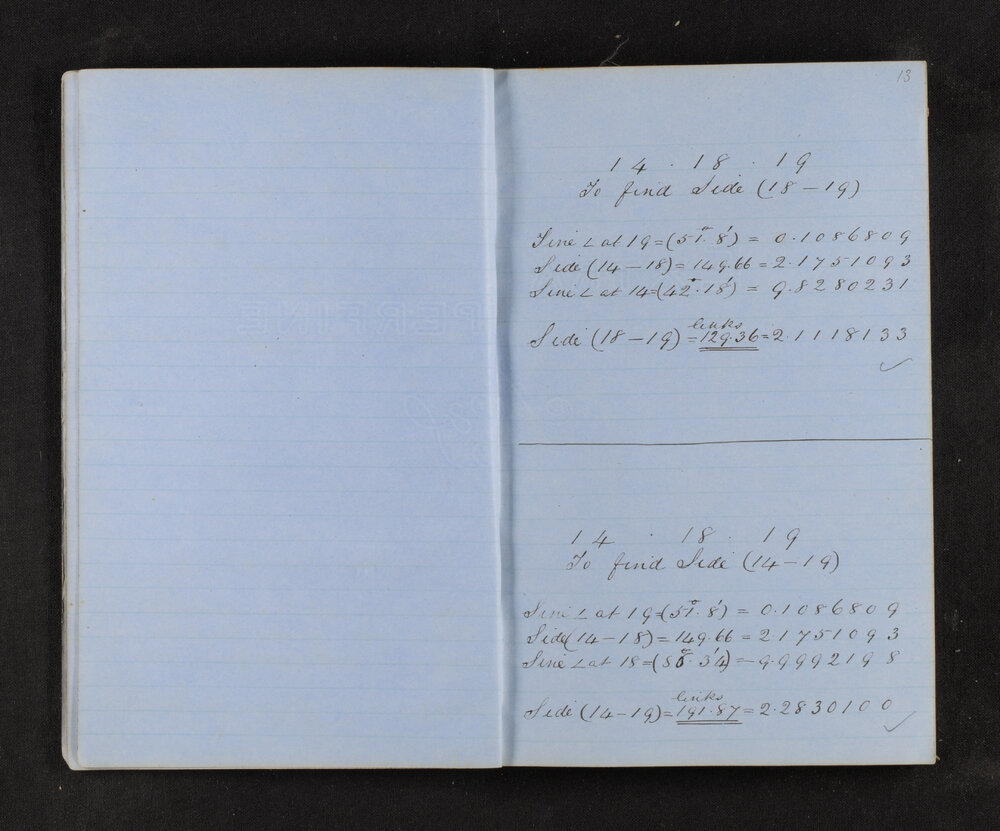 13
14 . 18 . 19
To find Side (18 – 19)
Sine ∠ at 19 = (51°. 8') = 0.1086809
Side (14 – 18) = 149.66 = 2.1751093
Sine ∠ at 14 = (42°. 18') = 9.8280231
links
Side (18 – 19) = 129.36 = 2.1118133
✓
14 . 18 . 19
To find Side (14 – 19)
Sine ∠ at 19 = (51°. 8') = 0.1086809
Side (14 – 18) = 149.66 = 2.1751093
Sine ∠ at 18 = (86°. 34') = 9.9992198
links
Side (14 – 19) = 191.87 = 2.2830100
✓